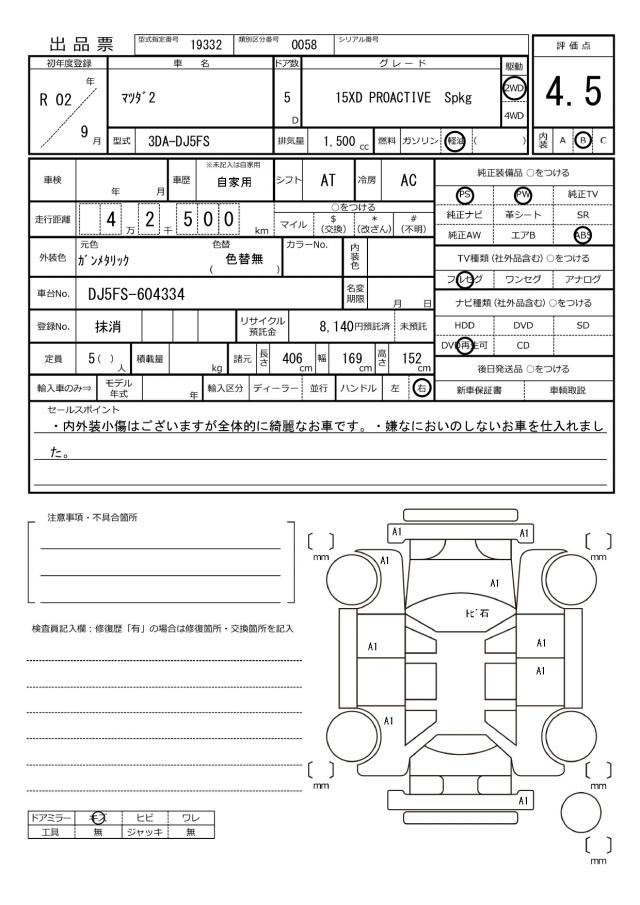 出品票
型式指定番号 19332 類別区分番号 0058 シリアル番号
評価点
4.5
内装 A B C
初年度登録 車名 ドア数 グレード 駆動
R 02 年 9 月
マツダ2
5 D
15XD PROACTIVE Spkg
2WD
4WD
型式 3DA-DJ5FS 排気量 1,500 cc 燃料 ガソリン 軽油 ( )
車検 年 月 車歴 ※未記入は自家用 自家用 シフト AT 冷房 AC
走行距離 4 万 2 千 5 0 0 km
○をつける
マイル $ (交換) * (改ざん) # (不明)
外装色 元色 ガンメタリック 色替 ( 色替無 ) カラーNo. 内装色
車台No. DJ5FS-604334 名変期限 月 日
登録No. 抹消 リサイクル預託金 8,140円預託済 未預託
定員 5( )人 積載量 kg 諸元 長さ 406 cm 幅 169 cm 高さ 152 cm
輸入車のみ⇒ モデル年式 年 輸入区分 ディーラー 並行 ハンドル 左 右
純正装備品 ○をつける
PS PW 純正TV
純正ナビ 革シート SR
純正AW エアB ABS
TV種類(社外品含む)○をつける
フルセグ ワンセグ アナログ
ナビ種類(社外品含む)○をつける
HDD DVD SD
DVD再生可 CD
後日発送品 ○をつける
新車保証書 車輌取説
セールスポイント
・内外装小傷はございますが全体的に綺麗なお車です。・嫌なにおいのしないお車を仕入れまし
た。
注意事項・不具合箇所
検査員記入欄：修復歴「有」の場合は修復箇所・交換箇所を記入
ドアミラー キズ ヒビ ワレ
工具 無 ジャッキ 無
A1 A1
mm mm
A1
A1
トビ石
A1 A1
A1
A1
mm mm
A1
mm